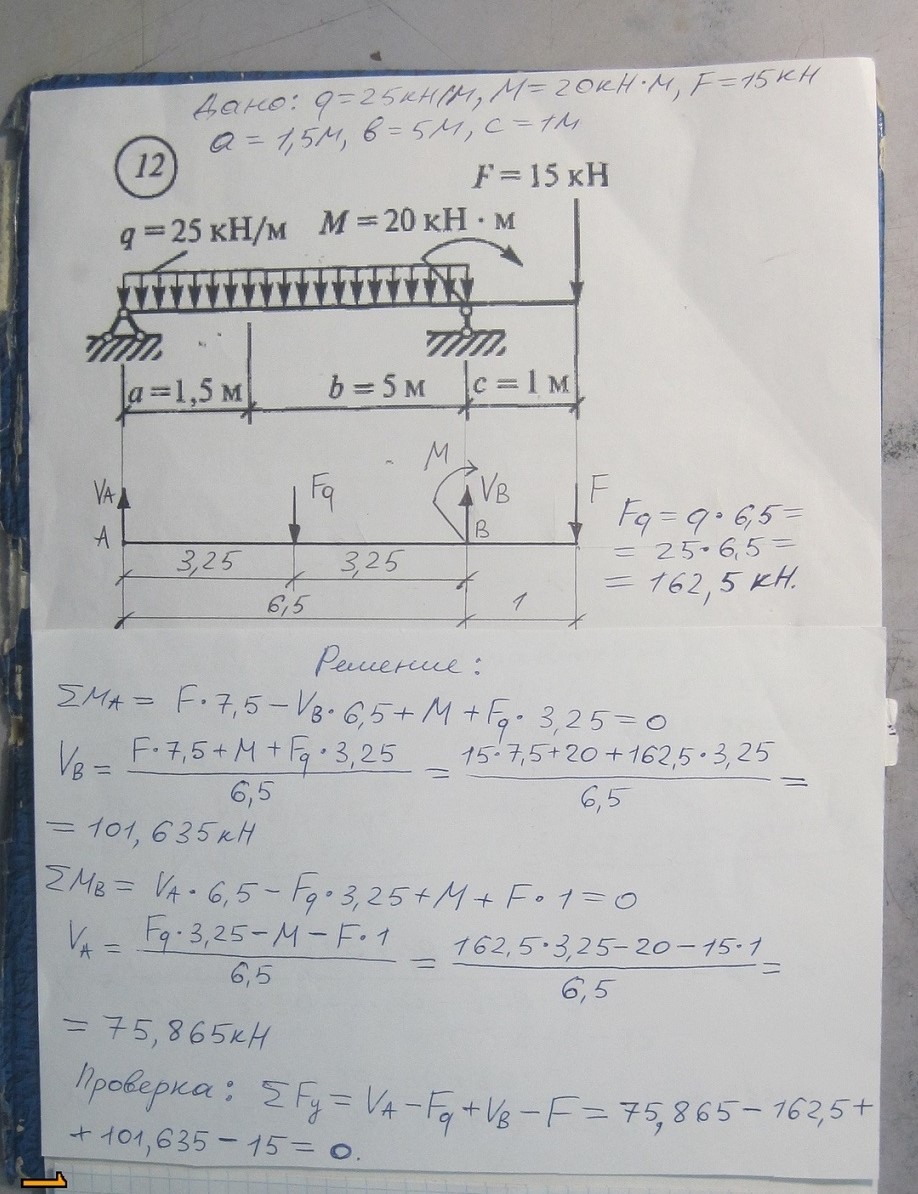 Дано: q=25кН/м, М=20кН·м, F=15кН
a=1,5м, в=5м, c=1м
12
F = 15 кН
q = 25 кН/м M = 20 кН · м
a = 1,5 м b = 5 м c = 1 м
M
VA Fq VB F
A B
3,25 3,25
6,5 1
Fq = q·6,5=
= 25·6,5=
= 162,5 кН.
Решение:
ΣMA = F·7,5–VB·6,5+M+Fq·3,25=0
VB = (F·7,5+M+Fq·3,25)/6,5 = (15·7,5+20+162,5·3,25)/6,5 =
= 101,635кН
ΣMB = VA·6,5–Fq·3,25+M+F·1=0
VA = (Fq·3,25–M–F·1)/6,5 = (162,5·3,25–20–15·1)/6,5 =
= 75,865кН
Проверка: ΣFy = VA–Fq+VB–F=75,865–162,5+
+101,635–15=0.
1